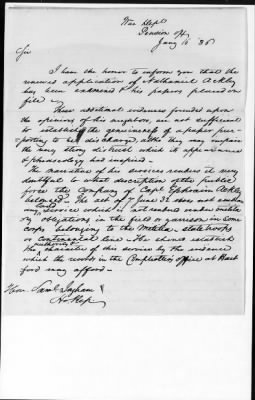 War Dept
Pension Off.
Jany 16 '36
Sir
I have the honor to inform you that the
renewed application of Nathaniel Ackley
has been examined & his papers placed on
file.
These additional evidences founded upon
the opinions of his neighbors, are not sufficient
to establish the genuineness of a paper pur-
porting to be his discharge, altho they may impair
the very strong distrust which its appearance
& phraseology had inspired.
The narrative of his services renders it very
doubtful to what description of the public
force the company of Capt Ephraim Ackley
belonged. The act of 7 June 32 does not embra
any service which is not rendered under milita
ry obligations in the field or garrison in some
corps belonging to the Militia - state troops
or continental line. He should establish
the character of his service by the evidence
which the records in the Comptrollers office at Hart
ford may afford.
Hon. Saml Ingham
Ho. Rep.